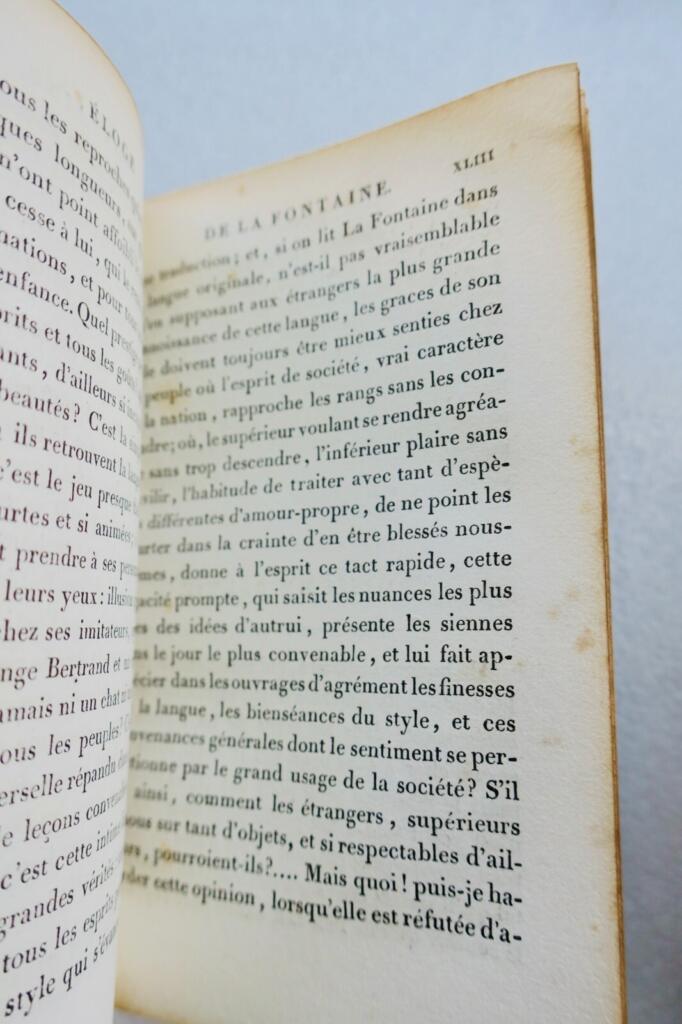 ÉLOGE
ous les reproches
ques longueurs,
n'ont point affoibli
cesse à lui, qui le
nations, et pour
enfance. Quel
rits et tous les
ants, d'ailleurs si
beautés? C'est la
ils retrouvent la
c'est le jeu presque
urtes et si animées
t prendre à ses
leurs yeux: illusion
chez ses imitateurs,
nge Bertrand et
amais ni un chat
ous les peuples?
erselle répandu
e leçons
c'est cette
grandes vérités
tous les esprits
style qui
DE LA FONTAINE. XLIII
traduction; et, si on lit La Fontaine dans
langue originale, n'est-il pas vraisemblable
en supposant aux étrangers la plus grande
noissance de cette langue, les graces de son
le doivent toujours être mieux senties chez
peuple où l'esprit de société, vrai caractère
la nation, rapproche les rangs sans les con-
dre; où, le supérieur voulant se rendre agréa-
sans trop descendre, l'inférieur plaire sans
vilir, l'habitude de traiter avec tant d'espè-
différentes d'amour-propre, de ne point les
urter dans la crainte d'en être blessés nous-
mes, donne à l'esprit ce tact rapide, cette
acité prompte, qui saisit les nuances les plus
es des idées d'autrui, présente les siennes
ns le jour le plus convenable, et lui fait ap-
écier dans les ouvrages d'agrément les finesses
la langue, les bienséances du style, et ces
nvenances générales dont le sentiment se per-
tionne par le grand usage de la société? S'il
ainsi, comment les étrangers, supérieurs
nous sur tant d'objets, et si respectables d'ail-
urs, pourroient-ils?.... Mais quoi! puis-je ha-
der cette opinion, lorsqu'elle est réfutée d'a-